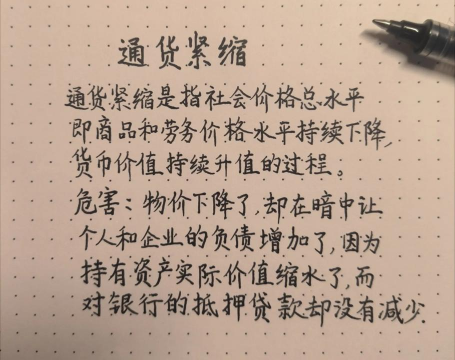 通货紧缩
通货紧缩是指社会价格总水平
即商品和劳务价格水平持续下降,
货币价值持续升值的过程。
危害：物价下降了,却在暗中让
个人和企业的负债增加了,因为
持有资产实际价值缩水了,而
对银行的抵押贷款却没有减少